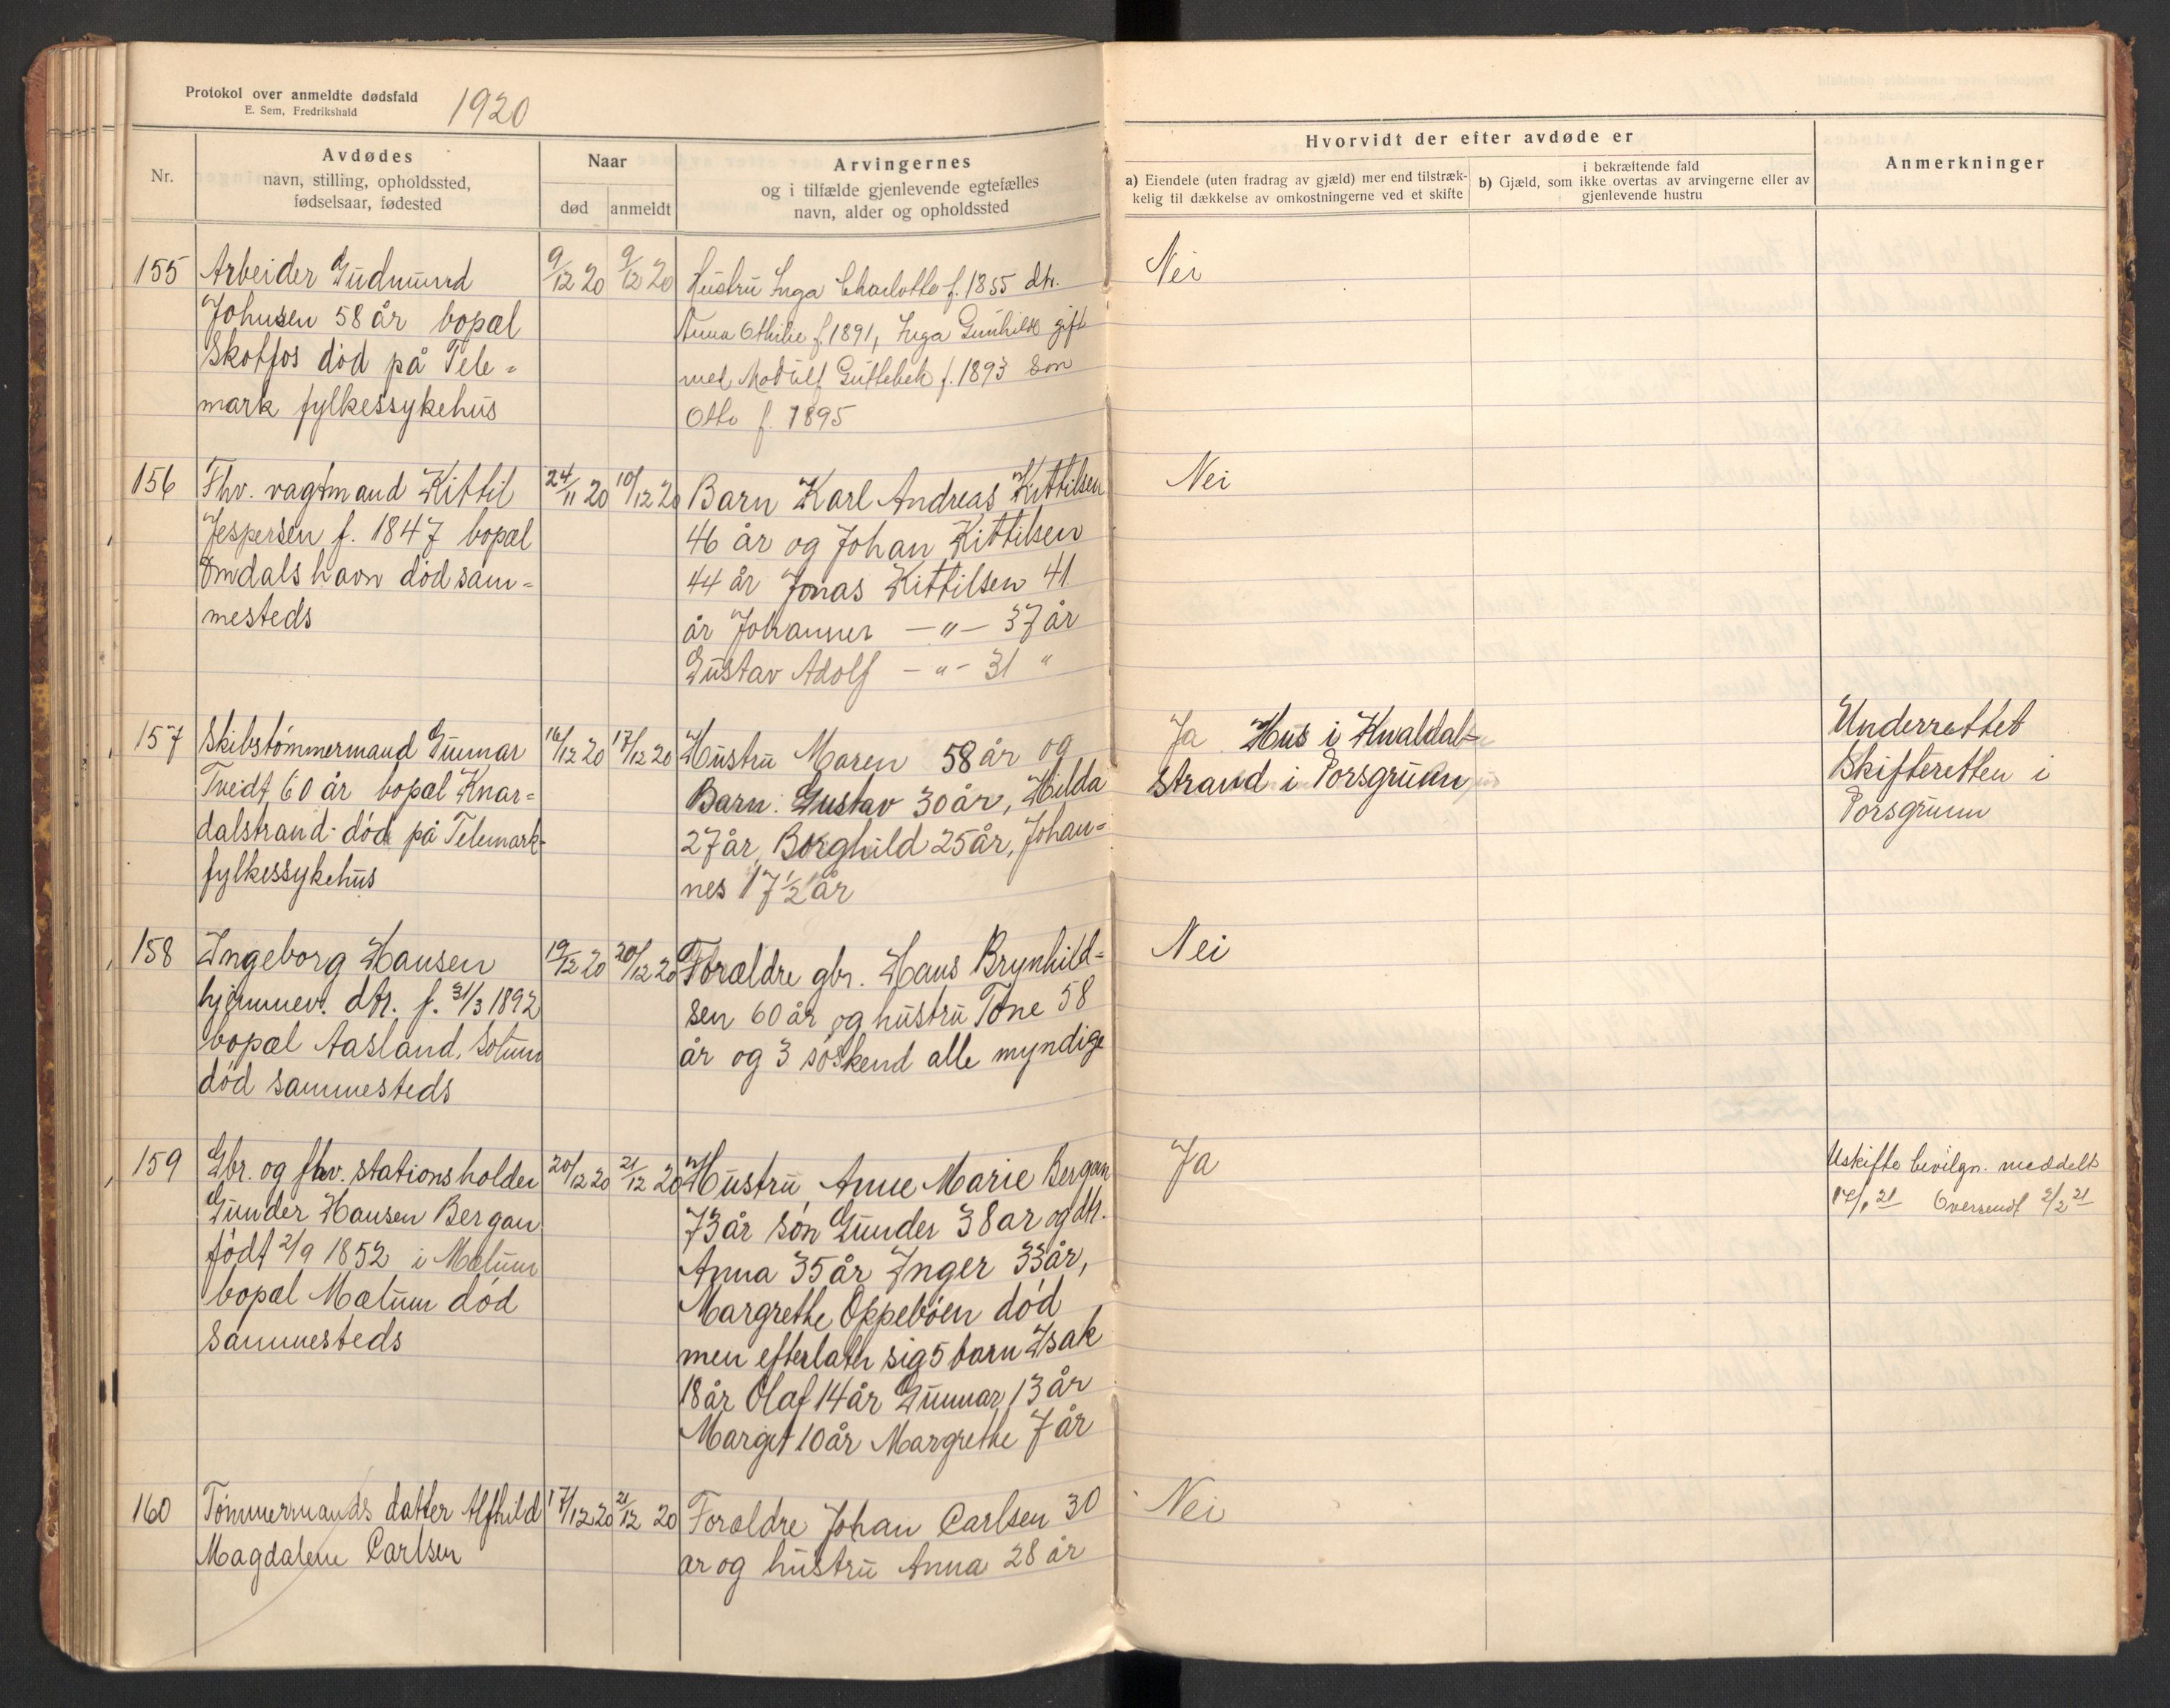 Protokol over anmeldte dødsfald
E. Sem, Fredrikshald
1920
Nr.
Avdødes
navn, stilling, opholdssted,
fødselsaar, fødested
Naar
død
anmeldt
Arvingernes
og i tilfælde gjenlevende egtefælles
navn, alder og opholdssted
Hvorvidt der efter avdøde er
a) Eiendele (uten fradrag av gjæld) mer end tilstræk-
kelig til dækkelse av omkostningerne ved et skifte
i bekræftende fald
b) Gjæld, som ikke overtas av arvingerne eller av
gjenlevende hustru
Anmerkninger
155
Arbeider Gudmund
Johnsen 58 år bopæl
Skotfos død på Tele-
mark fylkessykehus
9/12 20
9/12 20
Hustru Inga Charlotte f. 1855 dtr.
Anna Othilie f. 1891, Inga Gunhild gift
med Gutlebek f. 1893 Søn
Otto f. 1895
Nei
156
Fhv. vagtmand Kittil
Jespersen f. 1847 bopæl
Omdalshavn død sam-
mesteds
24/11 20
10/12 20
Barn Karl Andreas Kittilsen
46 år og Johan Kittilsen
44 år Jonas Kittilsen 41
år Johannes - " - 37 år
Gustav Adolf - " - 31 "
Nei
157
Skibstømmermand Gunnar
Tvedt 60 år bopæl Knar-
dalstrand død på Telemark
fylkessykehus
16/12 20
17/12 20
Hustru Maren 58 år og
Barn: Gustav 30 år, Hilda
27 år, Borghild 25 år, Johan-
nes 17 1/2 år
Ja Hus i
strand i Porsgrunn
Underrettet
Skifteretten i
Porsgrunn
158
Ingeborg Hansen
hjemmev. dtr. f. 31/3 1892
bopæl Aasland, Solum
død sammesteds
19/12 20
20/12 20
Forældre gbr. Hans Brynhild-
sen 60 år og hustru Tone 58
år og 3 søskend alle myndige
Nei
159
Gbr. og fhv. stationsholder
Gunder Hansen Bergan
født 2/9 1852 i Mælum
bopæl Mælum død
sammesteds
20/12 20
21/12 20
Hustru Anne Marie Bergan
73 år søn Gunder 38 ar og dtr.
Anna 35 år Inger 33 år,
Margrethe Oppebøen død
men efterlatt sig 5 barn Isak
18 år Olaf 14 år Gunnar 13 år
Margit 10 år Margrethe 7 år
Ja
Uskifte bevilgn. meddelt
17/1 21 Oversendt 2/2 21
160
Tømmermands datter Alfhild
Magdalene Carlsen
17/12 20
21/12 20
Forældre Johan Carlsen 30
ar og hustru Anna 28 år
Nei